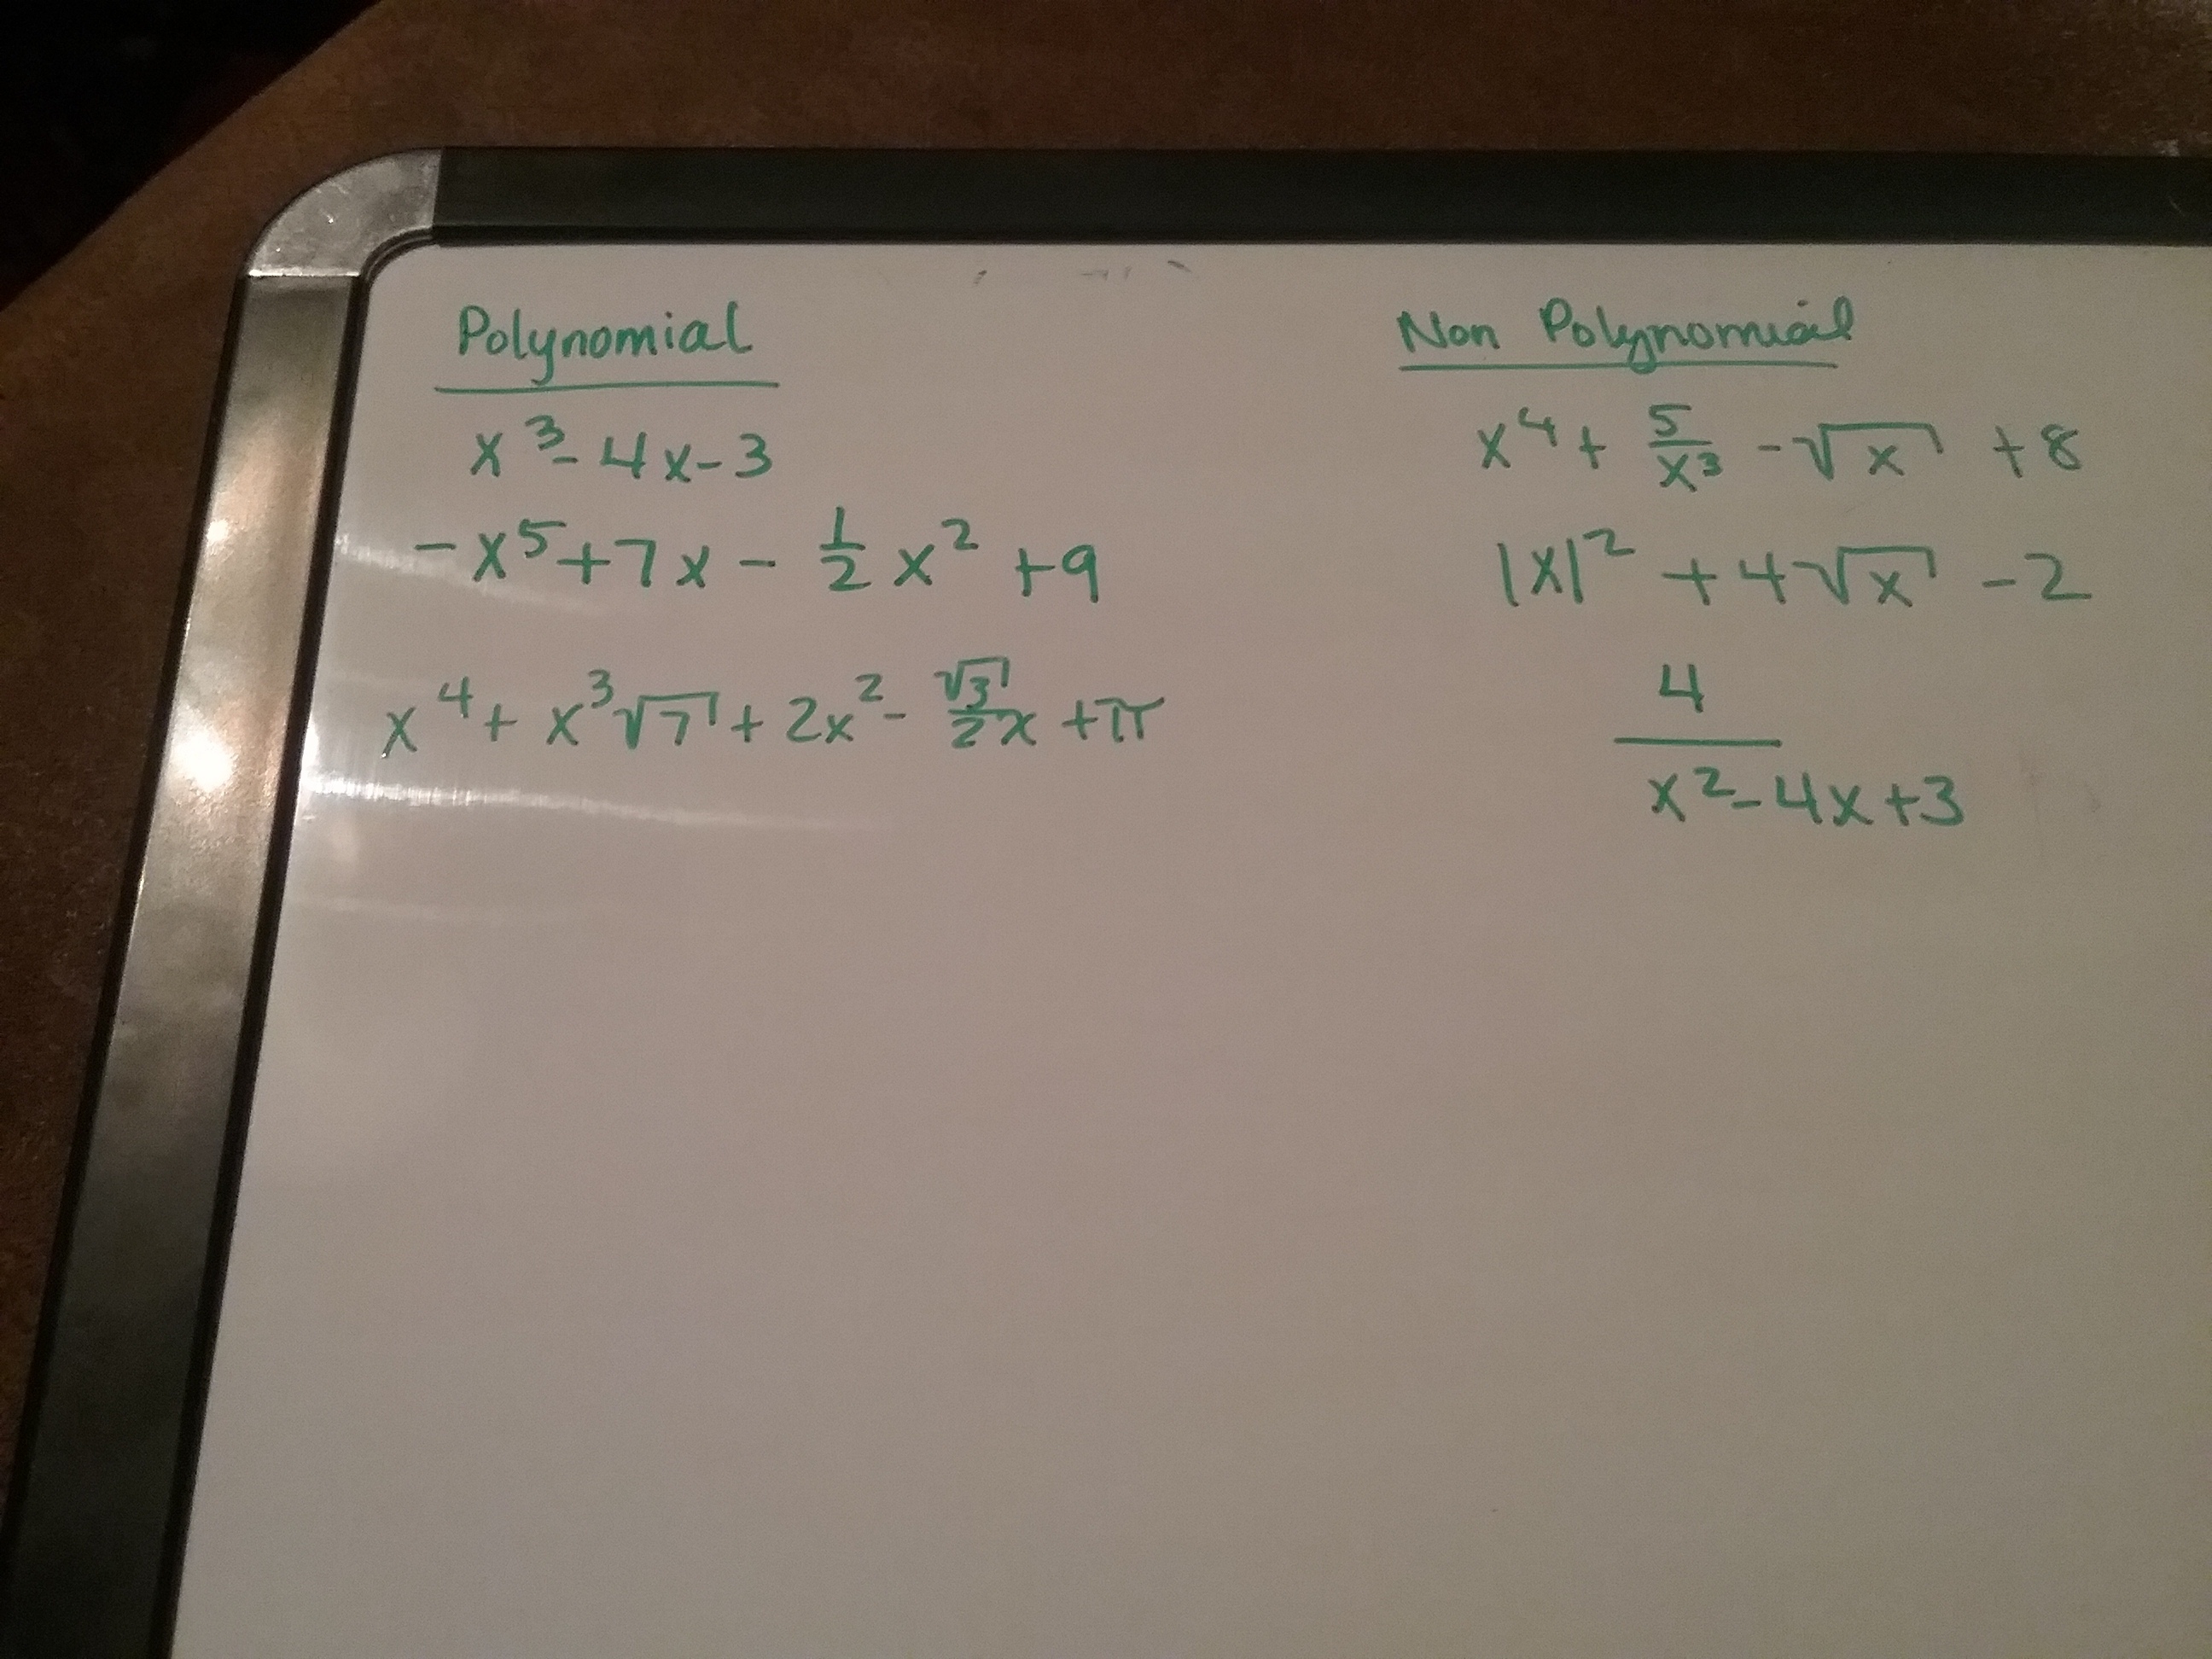 Polynomial
x³ - 4x - 3
-x⁵ + 7x - 1/2 x² + 9
x⁴ + x³√7 + 2x² - √3/2x + π
Non Polynomial
x⁴ + 5/x³ - √x + 8
|x|² + 4√x - 2
4
x² - 4x + 3